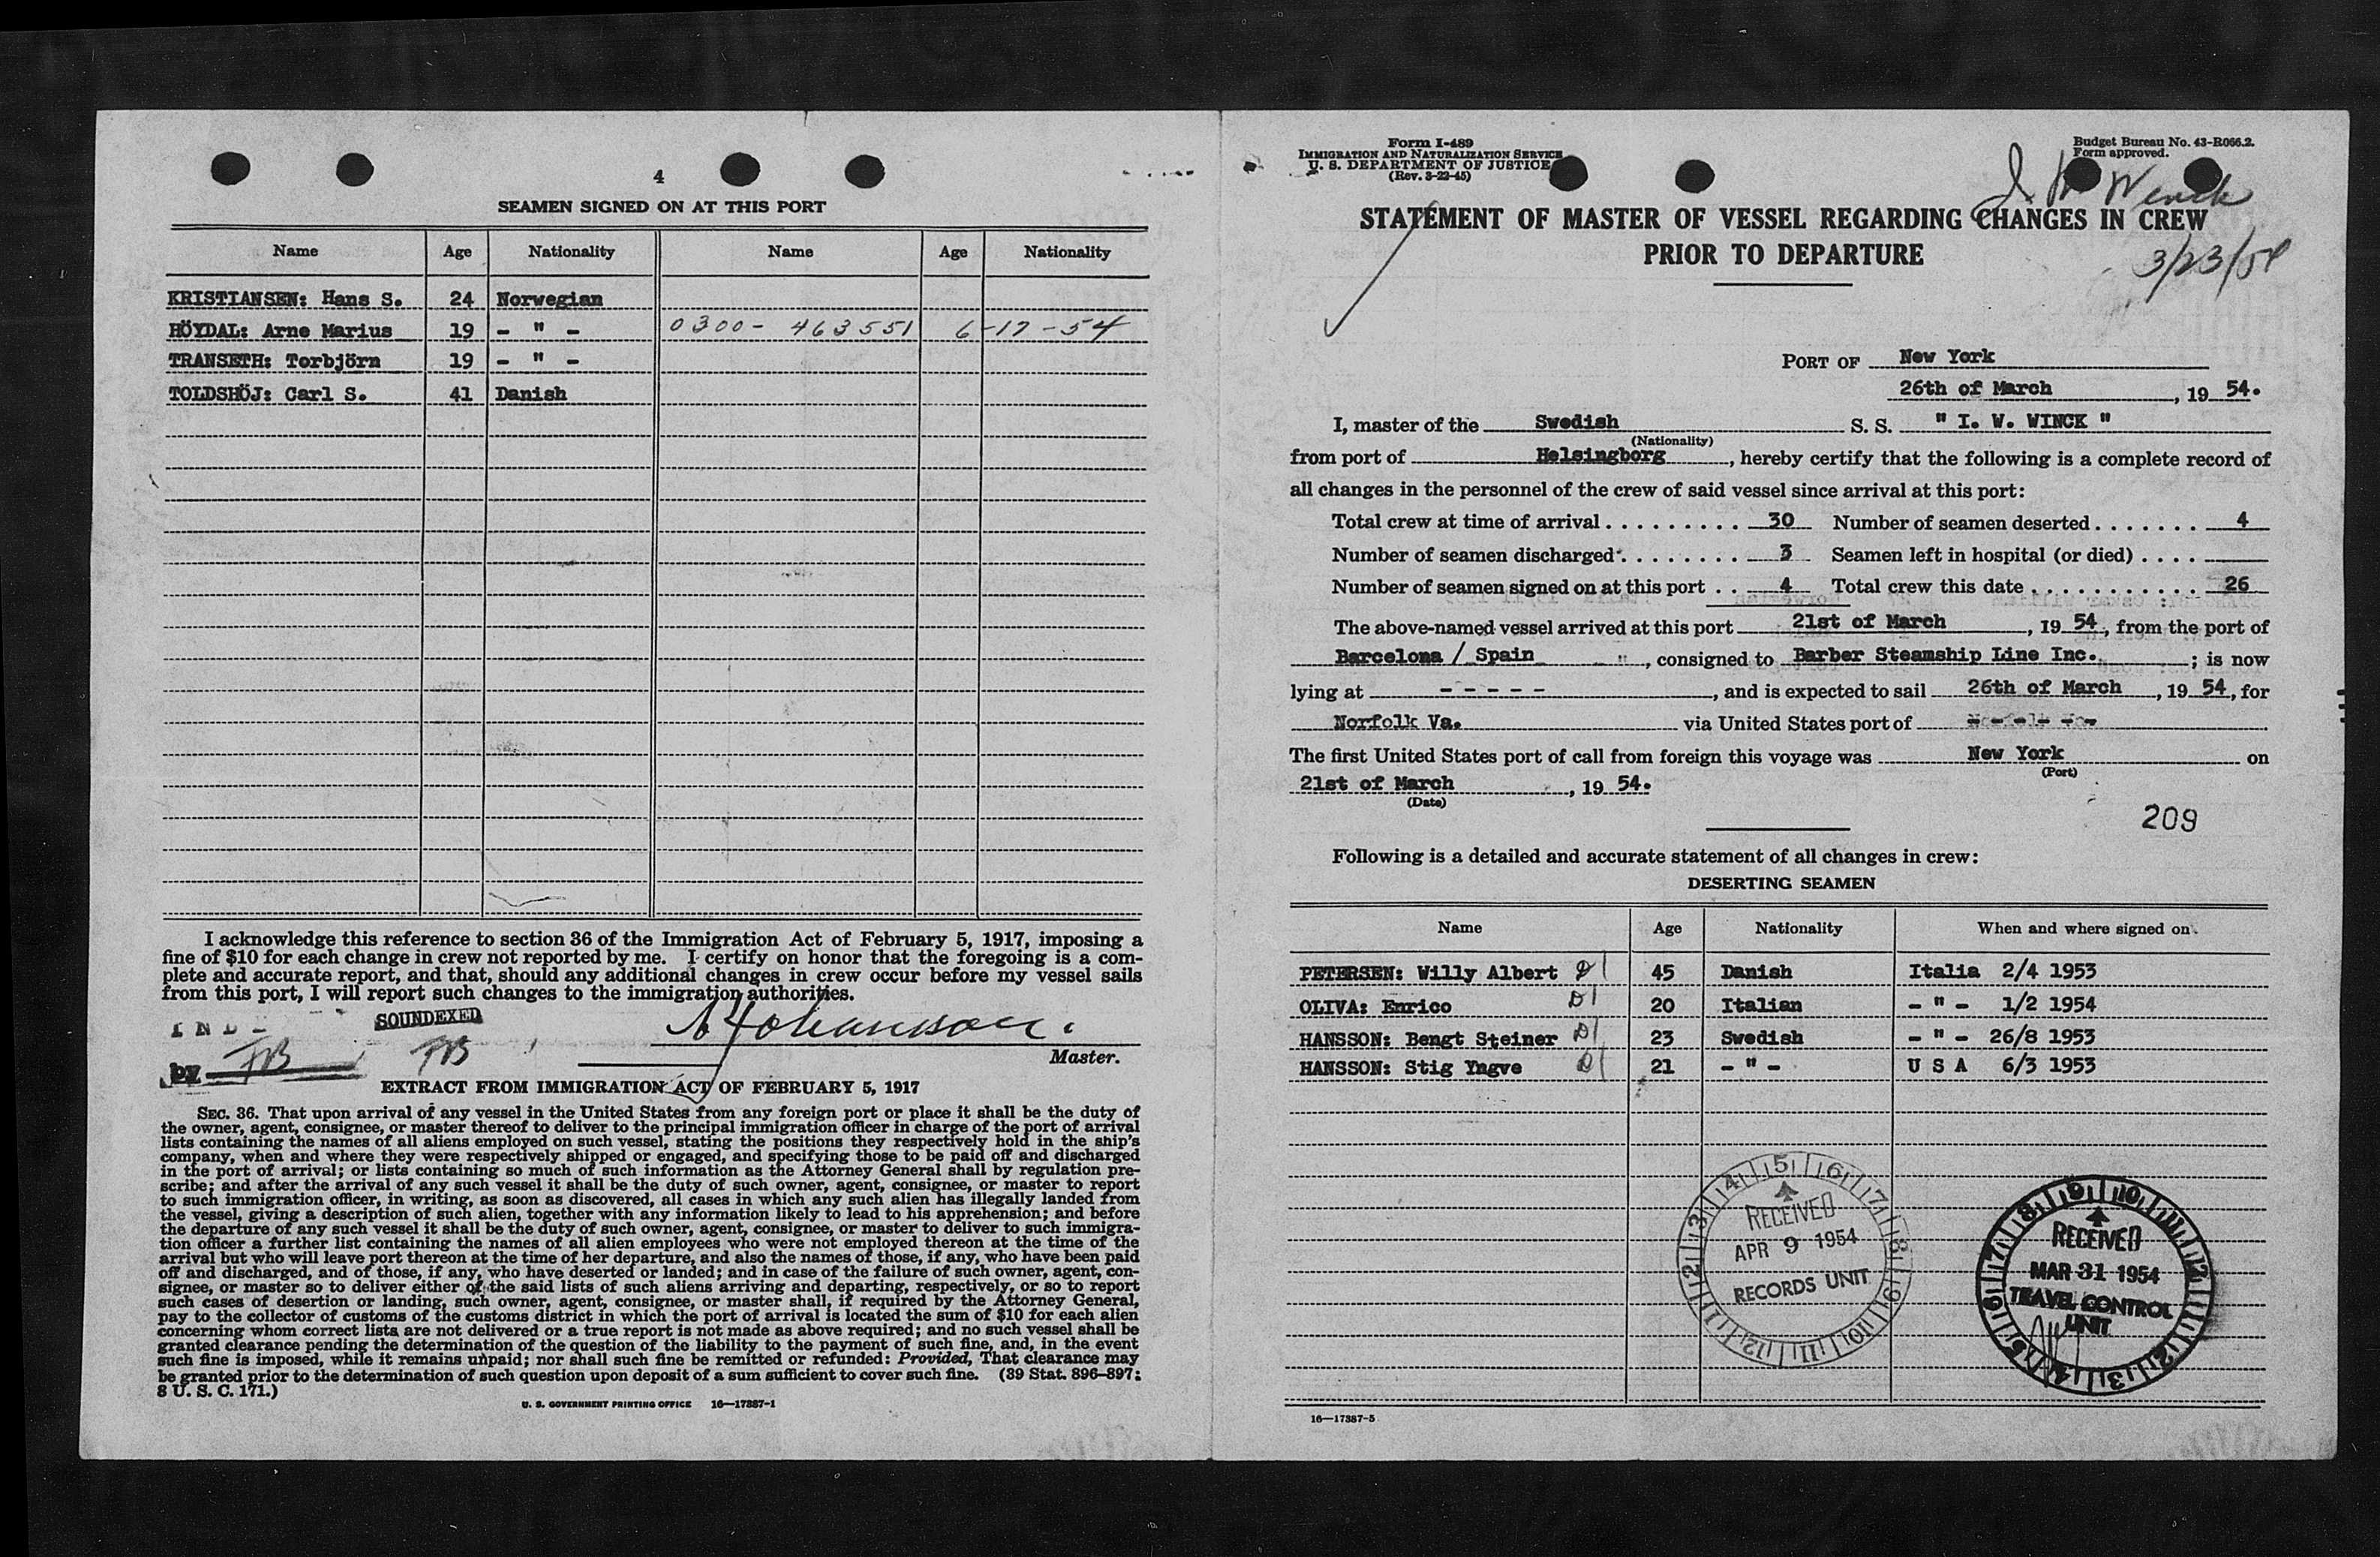 4
SEAMEN SIGNED ON AT THIS PORT
Name Age Nationality Name Age Nationality
KRISTIANSEN: Hans S. 24 Norwegian
HÖYDAL: Arne Marius 19 - " - 0300- 463551 6-17-54
TRANSETH: Torbjörn 19 - " -
TOLDSHÖJ: Carl S. 41 Danish
I acknowledge this reference to section 36 of the Immigration Act of February 5, 1917, imposing a
fine of $10 for each change in crew not reported by me. I certify on honor that the foregoing is a com-
plete and accurate report, and that, should any additional changes in crew occur before my vessel sails
from this port, I will report such changes to the immigration authorities.
SOUNDEXED
Johansson
by FVB FVB
Master.
EXTRACT FROM IMMIGRATION ACT OF FEBRUARY 5, 1917
SEC. 36. That upon arrival of any vessel in the United States from any foreign port or place it shall be the duty of
the owner, agent, consignee, or master thereof to deliver to the principal immigration officer in charge of the port of arrival
lists containing the names of all aliens employed on such vessel, stating the positions they respectively hold in the ship's
company, when and where they were respectively shipped or engaged, and specifying those to be paid off and discharged
in the port of arrival; or lists containing so much of such information as the Attorney General shall by regulation pre-
scribe; and after the arrival of any such vessel it shall be the duty of such owner, agent, consignee, or master to report
to such immigration officer, in writing, as soon as discovered, all cases in which any such alien has illegally landed from
the vessel, giving a description of such alien, together with any information likely to lead to his apprehension; and before
the departure of any such vessel it shall be the duty of such owner, agent, consignee, or master to deliver to such immigra-
tion officer a further list containing the names of all alien employees who were not employed thereon at the time of the
arrival but who will leave port thereon at the time of her departure, and also the names of those, if any, who have been paid
off and discharged, and of those, if any, who have deserted or landed; and in case of the failure of such owner, agent, con-
signee, or master so to deliver either of the said lists of such aliens arriving and departing, respectively, or so to report
such cases of desertion or landing, such owner, agent, consignee, or master shall, if required by the Attorney General,
pay to the collector of customs of the customs district in which the port of arrival is located the sum of $10 for each alien
concerning whom correct lists are not delivered or a true report is not made as above required; and no such vessel shall be
granted clearance pending the determination of the question of the liability to the payment of such fine, and, in the event
such fine is imposed, while it remains unpaid; nor shall such fine be remitted or refunded: Provided, That clearance may
be granted prior to the determination of such question upon deposit of a sum sufficient to cover such fine. (39 Stat. 896-897;
8 U. S. C. 171.)
U. S. GOVERNMENT PRINTING OFFICE 16—17387-1
Form I-489
IMMIGRATION AND NATURALIZATION SERVICE
U. S. DEPARTMENT OF JUSTICE
(Rev. 3-22-45)
Budget Bureau No. 43-R066.2.
Form approved.
I W Winck
STATEMENT OF MASTER OF VESSEL REGARDING CHANGES IN CREW
PRIOR TO DEPARTURE
3/23/54
PORT OF New York
26th of March, 19 54.
I, master of the Swedish S. S. " I. W. WINCK "
(Nationality)
from port of Helsingborg, hereby certify that the following is a complete record of
all changes in the personnel of the crew of said vessel since arrival at this port:
Total crew at time of arrival . . . . . . . . . . 30 Number of seamen deserted . . . . . . . 4
Number of seamen discharged . . . . . . . . 3 Seamen left in hospital (or died) . . . .
Number of seamen signed on at this port . . 4 Total crew this date . . . . . . . . . . . 26
The above-named vessel arrived at this port 21st of March, 19 54, from the port of
Barcelona / Spain ", consigned to Barber Steamship Line Inc.; is now
lying at - - - - -, and is expected to sail 26th of March, 19 54, for
Norfolk Va. via United States port of - - - - - -
The first United States port of call from foreign this voyage was New York on
(Port)
21st of March, 19 54.
(Date)
209
Following is a detailed and accurate statement of all changes in crew:
DESERTING SEAMEN
Name Age Nationality When and where signed on
PETERSEN: Willy Albert D1 45 Danish Italia 2/4 1953
OLIVA: Enrico D1 20 Italian - " - 1/2 1954
HANSSON: Bengt Steiner D1 23 Swedish - " - 26/8 1953
HANSSON: Stig Yngve D1 21 - " - U S A 6/3 1953
1 2 3 4 5 6 7 8 9 10 11 12
RECEIVED
APR 9 1954
RECORDS UNIT
1 2 3 4 5 6 7 8 9 10 11 12
RECEIVED
MAR 31 1954
TRAVEL CONTROL
UNIT
16—17387-5